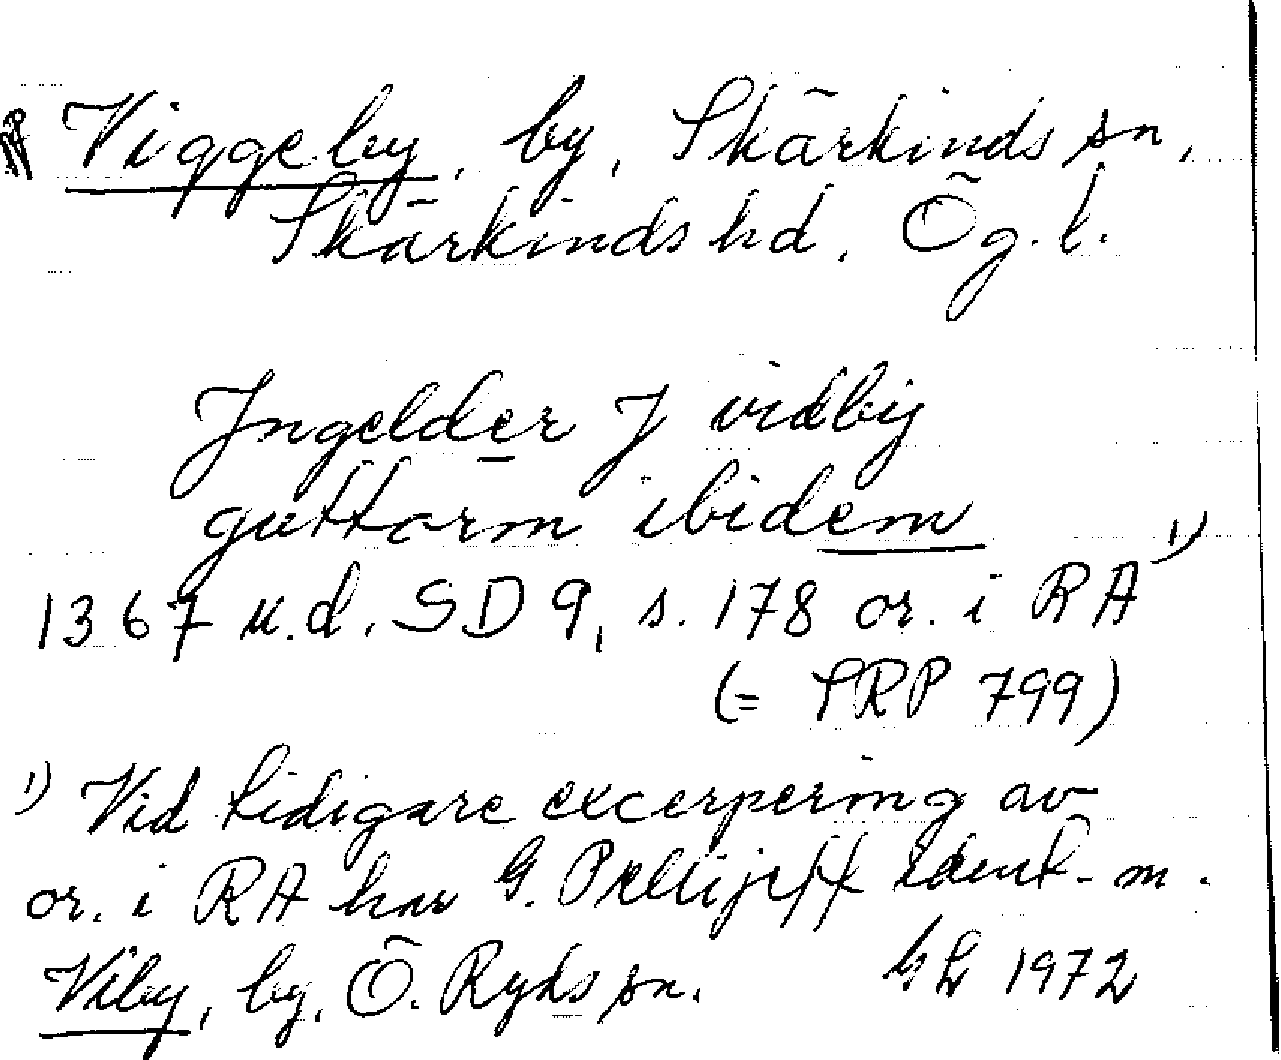 Viggeby, by, Skärkinds sn,
Skärkinds hd, Ög. l.
Jngelder J vidby
guttorm ibidem
1367 u.d. SD 9, s. 178 or. i RA 1)
(= SRP 799)
1) Vid tidigare excerpering av
or. i RA har G. Pellijeff ident. m.
Viby, by, Ö. Ryds sn. GL 1972